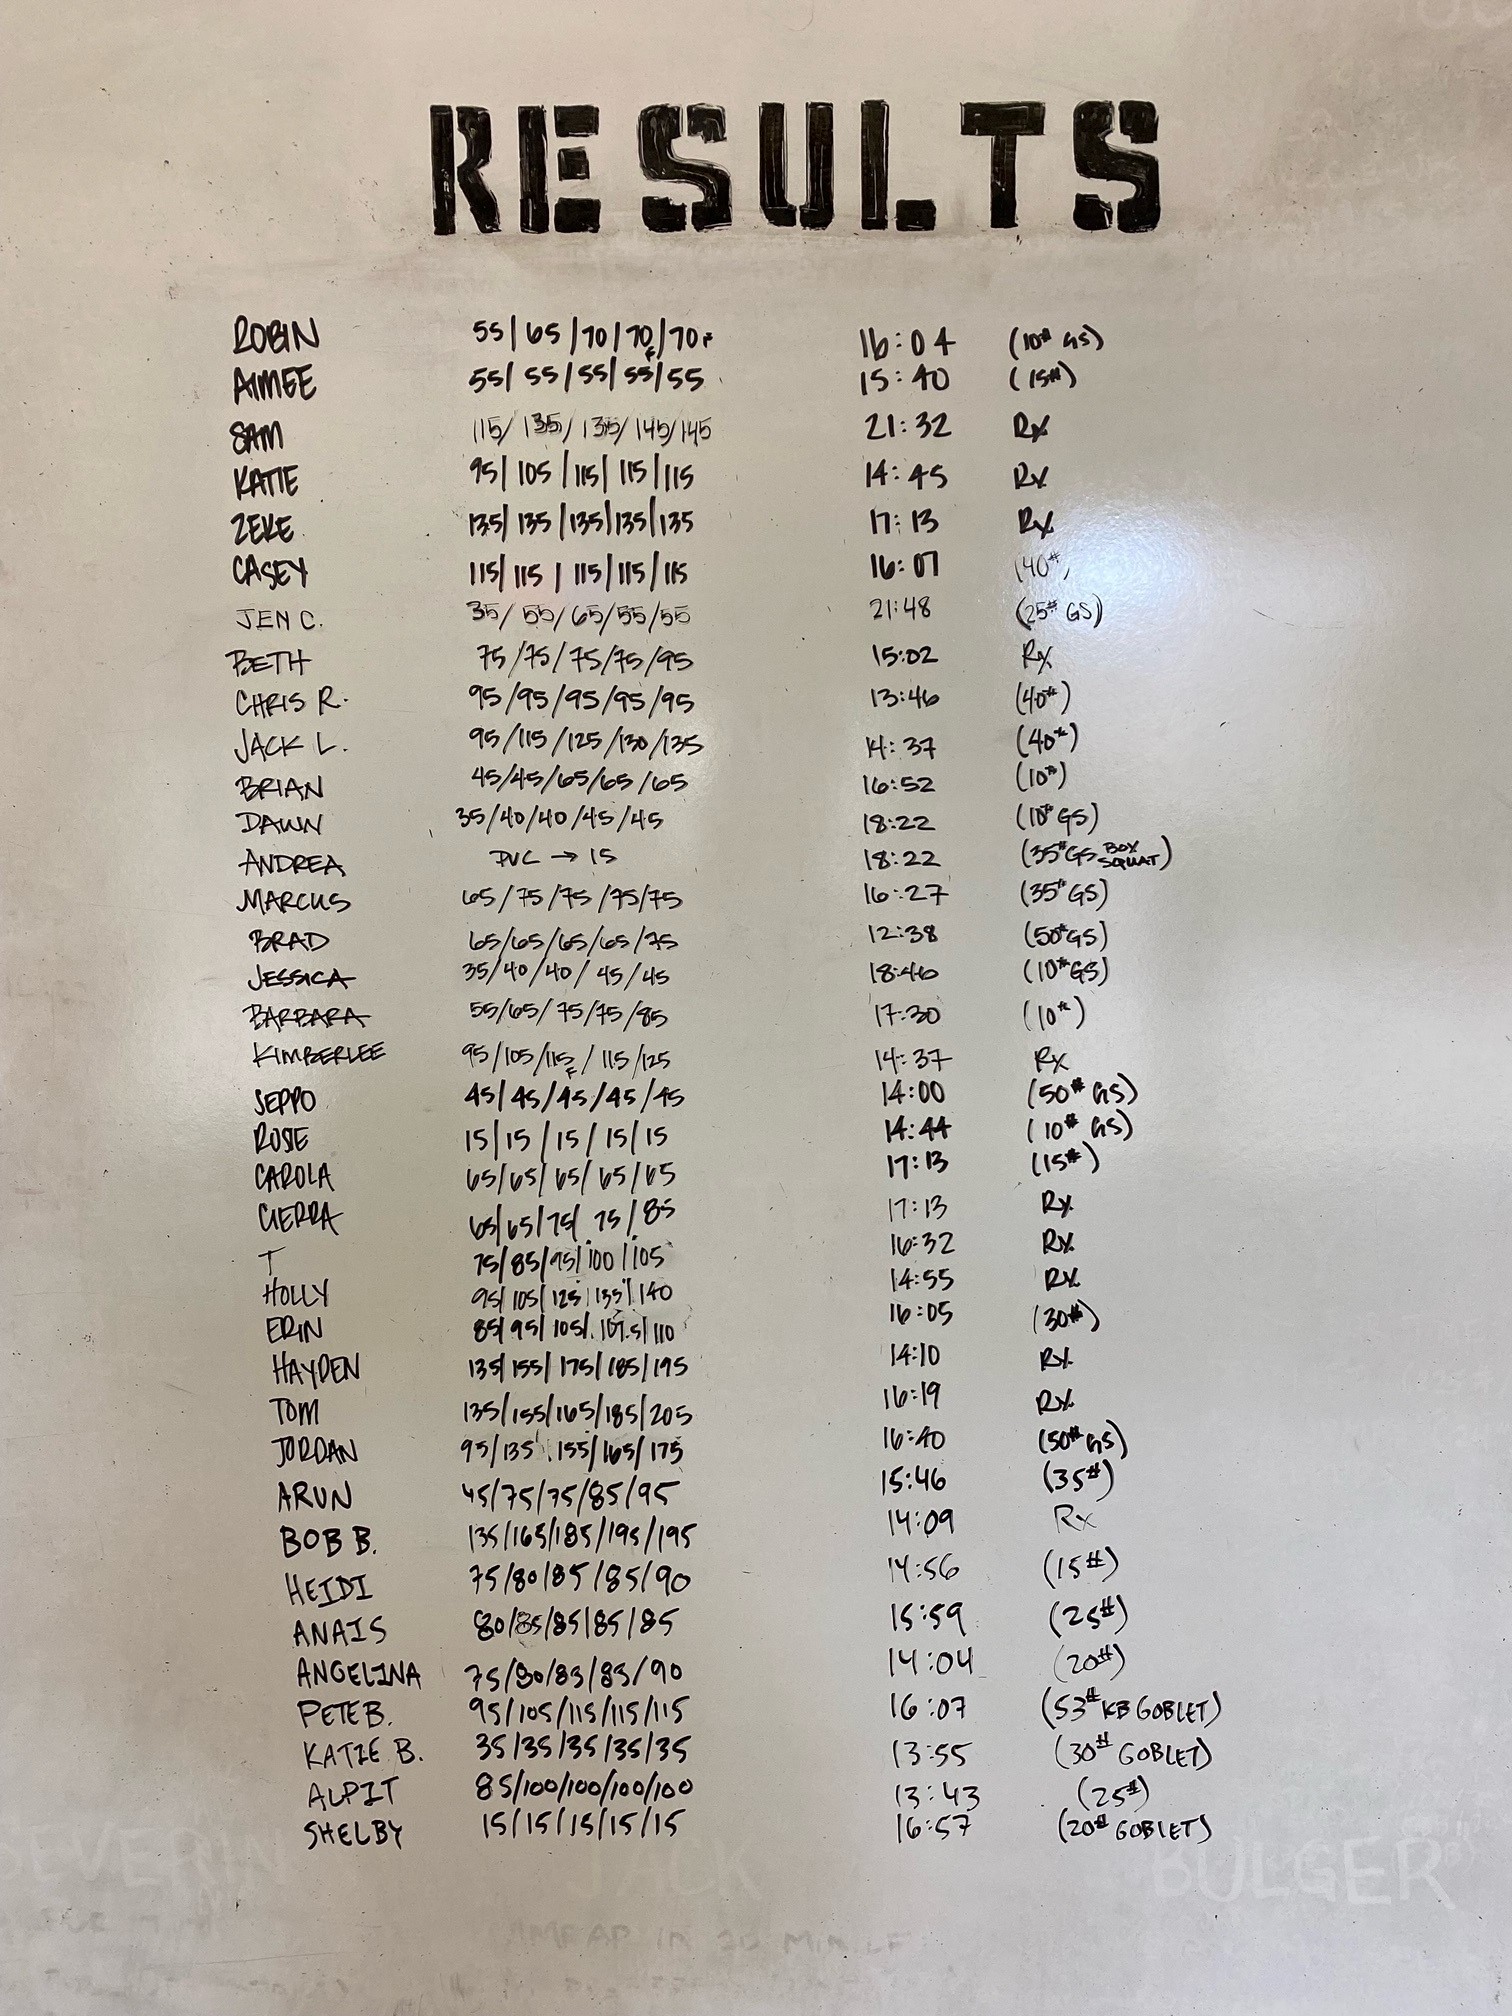 RESULTS
ROBIN 55/65/70/70F/70F 16:04 (10# GS)
AIMEE 55/55/55/55/55 15:40 (15#)
SAM 115/135/135/145/145 21:32 Rx
KATIE 95/105/115/115/115 14:45 Rx
ZEKE 135/135/135/135/135 17:13 Rx
CASEY 115/115/115/115/115 16:07 (40#)
JEN C. 35/55/65/55/55 21:48 (25# GS)
BETH 75/75/75/75/95 15:02 Rx
CHRIS R. 95/95/95/95/95 13:46 (40#)
JACK L. 95/115/125/130/135 14:37 (40#)
BRIAN 45/45/65/65/65 16:52 (10#)
DAWN 35/40/40/45/45 18:22 (10# GS)
ANDREA PVC → 15 18:22 (35# GS BOX SQUAT)
MARCUS 65/75/75/75/75 16:27 (35# GS)
BRAD 65/65/65/65/75 12:38 (50# GS)
JESSICA 35/40/40/45/45 18:46 (10# GS)
BARBARA 55/65/75/75/85 17:30 (10#)
KIMBERLEE 95/105/115F/115/125 14:37 Rx
SEPPO 45/45/45/45/45 14:00 (50# GS)
ROSIE 15/15/15/15/15 14:44 (10# GS)
CAROLA 65/65/65/65/65 17:13 (15#)
CIERRA 65/65/75/75/85 17:13 Rx
T 75/85/95/100/105 16:32 Rx
HOLLY 95/105/125/135/140 14:55 Rx
ERIN 85/95/105/107.5/110 16:05 (30#)
HAYDEN 135/155/175/185/195 14:10 Rx
TOM 135/155/165/185/205 16:19 Rx
JORDAN 95/135/155/165/175 16:40 (50# GS)
ARUN 45/75/75/85/95 15:46 (35#)
BOB B. 135/165/185/195/195 14:09 Rx
HEIDI 75/80/85/85/90 14:56 (15#)
ANAIS 80/85/85/85/85 15:59 (25#)
ANGELINA 75/80/83/83/90 14:04 (20#)
PETE B. 95/105/115/115/115 16:07 (53# KB GOBLET)
KATIE B. 35/35/35/35/35 13:55 (30# GOBLET)
ALPIT 85/100/100/100/100 13:43 (25#)
SHELBY 15/15/15/15/15 16:57 (20# GOBLET)
JACK BULGER